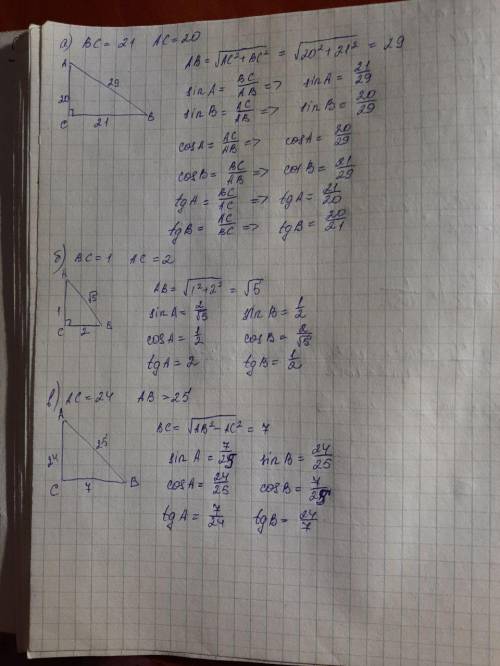 а) BC = 21 AC = 20
AB = √AC² + BC² = √20² + 21² = 29
A
29
20
C
21
B
sin A = BC/AB => sin A = 21/29
sin B = AC/AB => sin B = 20/29
cos A = AC/AB => cos A = 20/29
cos B = BC/AB => cos B = 21/29
tg A = BC/AC => tg A = 21/20
tg B = AC/BC => tg B = 20/21
б) BC = 1 AC = 2
A
√5
1
C
2
B
AB = √1² + 2² = √5
sin A = 2/√5 sin B = 1/2
cos A = 1/2 cos B = 2/√5
tg A = 2 tg B = 1/2
в) AC = 24 AB = 25
A
25
24
C
7
B
BC = √AB² - AC² = 7
sin A = 7/25 sin B = 24/25
cos A = 24/25 cos B = 7/25
tg A = 7/24 tg B = 24/7